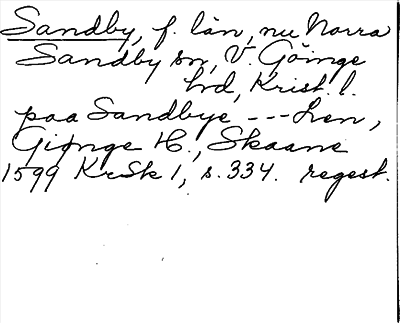 Sandby, f. län, nu Norra
Sandby sn, V. Göinge
hd, Krist. l.
paa Sandbye --- Len,
Giønge H., Skaane
1599 KrSk 1, s. 334. regest.